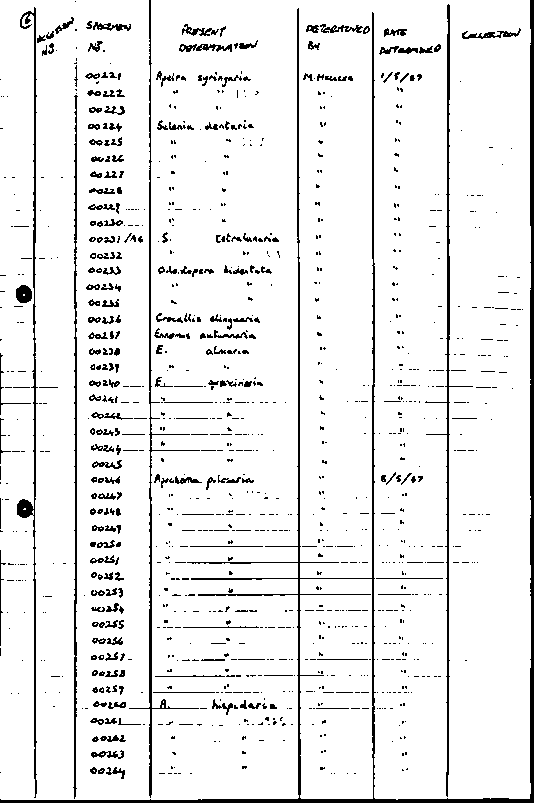 6
ACCESSION NO. SPECIMEN NO. PRESENT DETERMINATION DETERMINED BY DATE DETERMINED COLLECTION
00221 Apeira syringaria 1/5/87
00222 " " "
00223 " " " "
00224 Selenia dentaria " "
00225 " " " "
00226 " " " "
00227 " " " "
00228 " " " "
00229 " " " "
00230 " " " "
00231/A6 S. tetralunaria " "
00232 " " "
00233 Odontopera bidentata " "
00234 " " " "
00235 " " " "
00236 Crocallis elinguaria " "
00237 Ennomos autumnaria " "
00238 E. alniaria " "
00239 " " " "
00240 E. " "
00241 " " " "
00242 " " " "
00243 " " " "
00244 " " " "
00245 " " " "
00246 Apocheima pilosaria " 8/5/87
00247 " " " "
00248 " " " "
00249 " " " "
00250 " " " "
00251 " " " "
00252 " " " "
00253 " " " "
00254 " " " "
00255 " " " "
00256 " " " "
00257 " " " "
00258 " " " "
00259 " " " "
00260 A. hispidaria " "
00261 " " " "
00262 " " " "
00263 " " " "
00264 " " " "